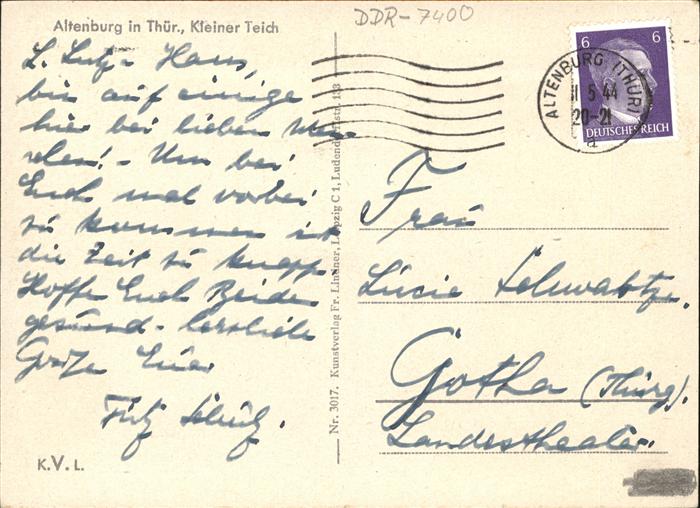 Altenburg in Thür., Kleiner Teich
DDR-7400
L. Lutz- Hans,
bin auf einige
hier bei lieben
Um bei
Euch mal vorbei
zu kommen ist
die Zeit zu knapp
Hoffe Euch Beide
gesund - herzliche
Grüße Euer
Fritz Schulz.
K.V.L.
Nr. 3017. Kunstverlag Fr. Lindner, Leipzig C 1, Ludendorffstr.
6 6
DEUTSCHES REICH
ALTENBURG (THÜR)
5 44
20-21
a
Frau
Lucie Schwabtze.
Gotha (Thürg).
Landestheater.